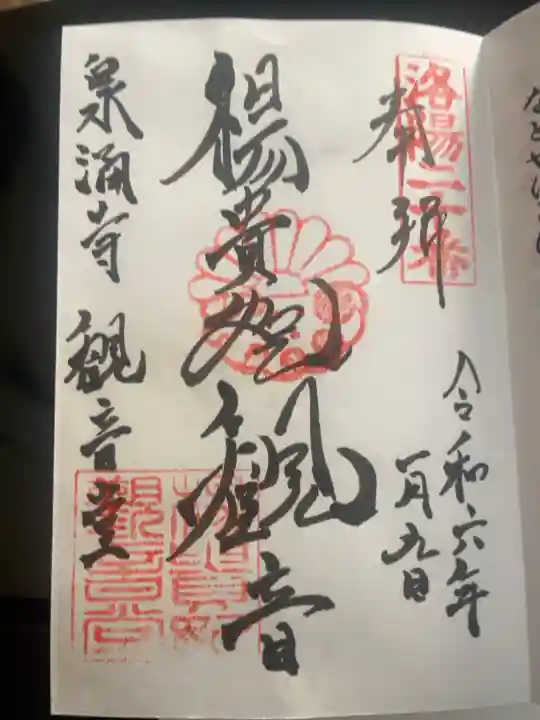 奉拝
洛陽二十番
令和六年
一月九日
楊貴妃観音
泉涌寺 観音堂
楊貴妃
観音堂